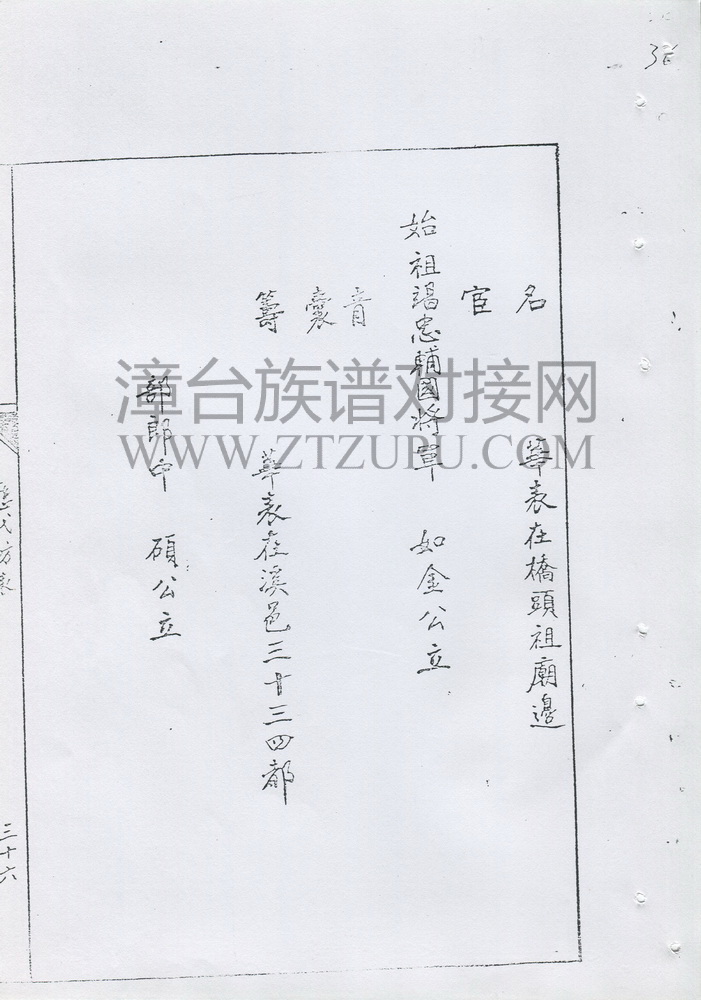 36
名宦 華表在橋頭祖廟邊
始祖竭忠輔國將軍 如金公立
青囊籌 華表在溪邑三十三四都
部郎中 碩公立
氏方表
三十六
漳台族谱对接网
WWW.ZTZUPU.COM